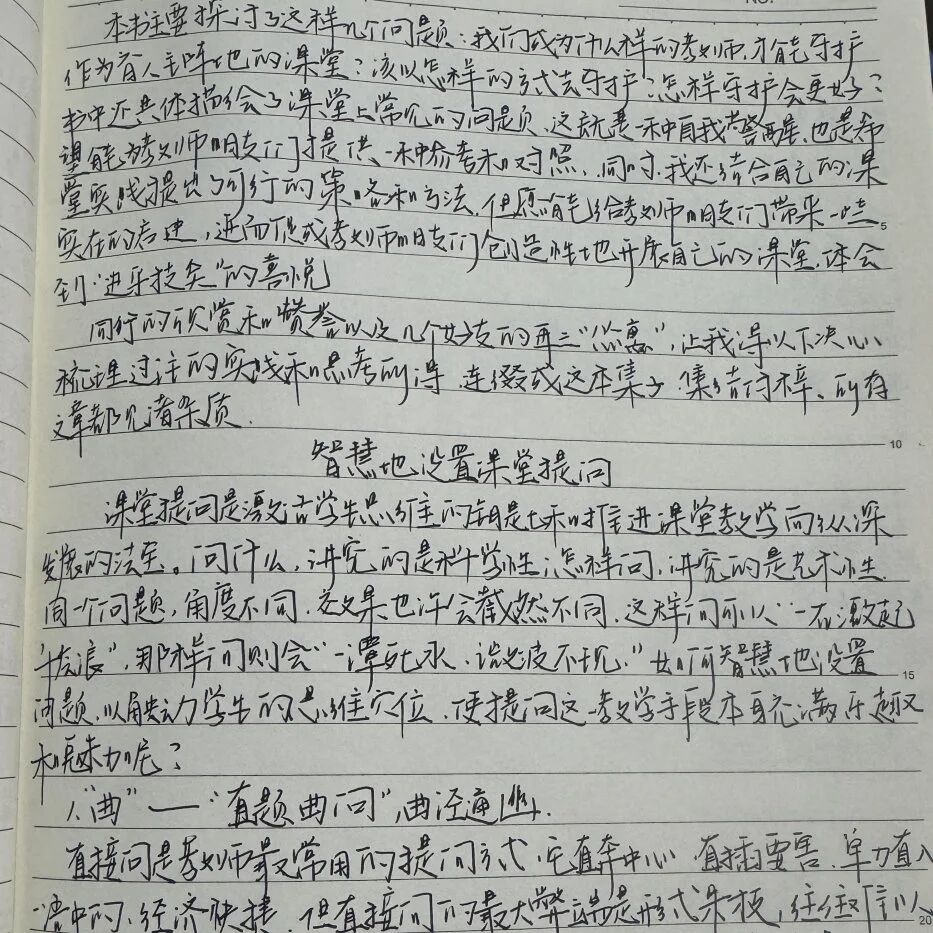 NO.
本书主要探讨了这样几个问题：我们成为什么样的教师，才能守护
作为育人主阵地的课堂？该以怎样的方式去守护？怎样守护会更好？
书中还具体描绘了课堂上常见的问题，这就是一种自我警醒，也是希
望能为教师朋友们提供一种参考和对照，同时，我还结合自己的课
堂实践提出了可行的策略和方法，但愿能给教师朋友们带来一些
实在的启迪，进而促成教师朋友们创造性地开展自己的课堂，体会
到“进乎技矣”的喜悦
同行的欣赏和赞誉以及几个好友的再三“怂恿”，让我得以下决心
梳理过往的实践和思考所得，连缀成这本集子，集结付梓、所有
文章都见诸杂质.
智慧地设置课堂提问
课堂提问是激活学生思维的钥匙和推进课堂教学向纵深
发展的法宝。问什么，讲究的是科学性；怎样问，讲究的是艺术性.
同一个问题，角度不同，效果也许会截然不同，这样问可以“一石激起
千层浪”，那样问则会“一潭死水，微波不现.”如何智慧地设置
问题，以触动学生的思维穴位，使提问这一教学手段本身充满乐趣
和魅力呢？
1、“曲”—“直题曲问”，曲径通幽.
直接问是教师最常用的提问方式，它直奔中心，直插要害，单刀直入
一语中的，经济快捷，但直接问的最大弊端是形式呆板，往往
5
10
15
20